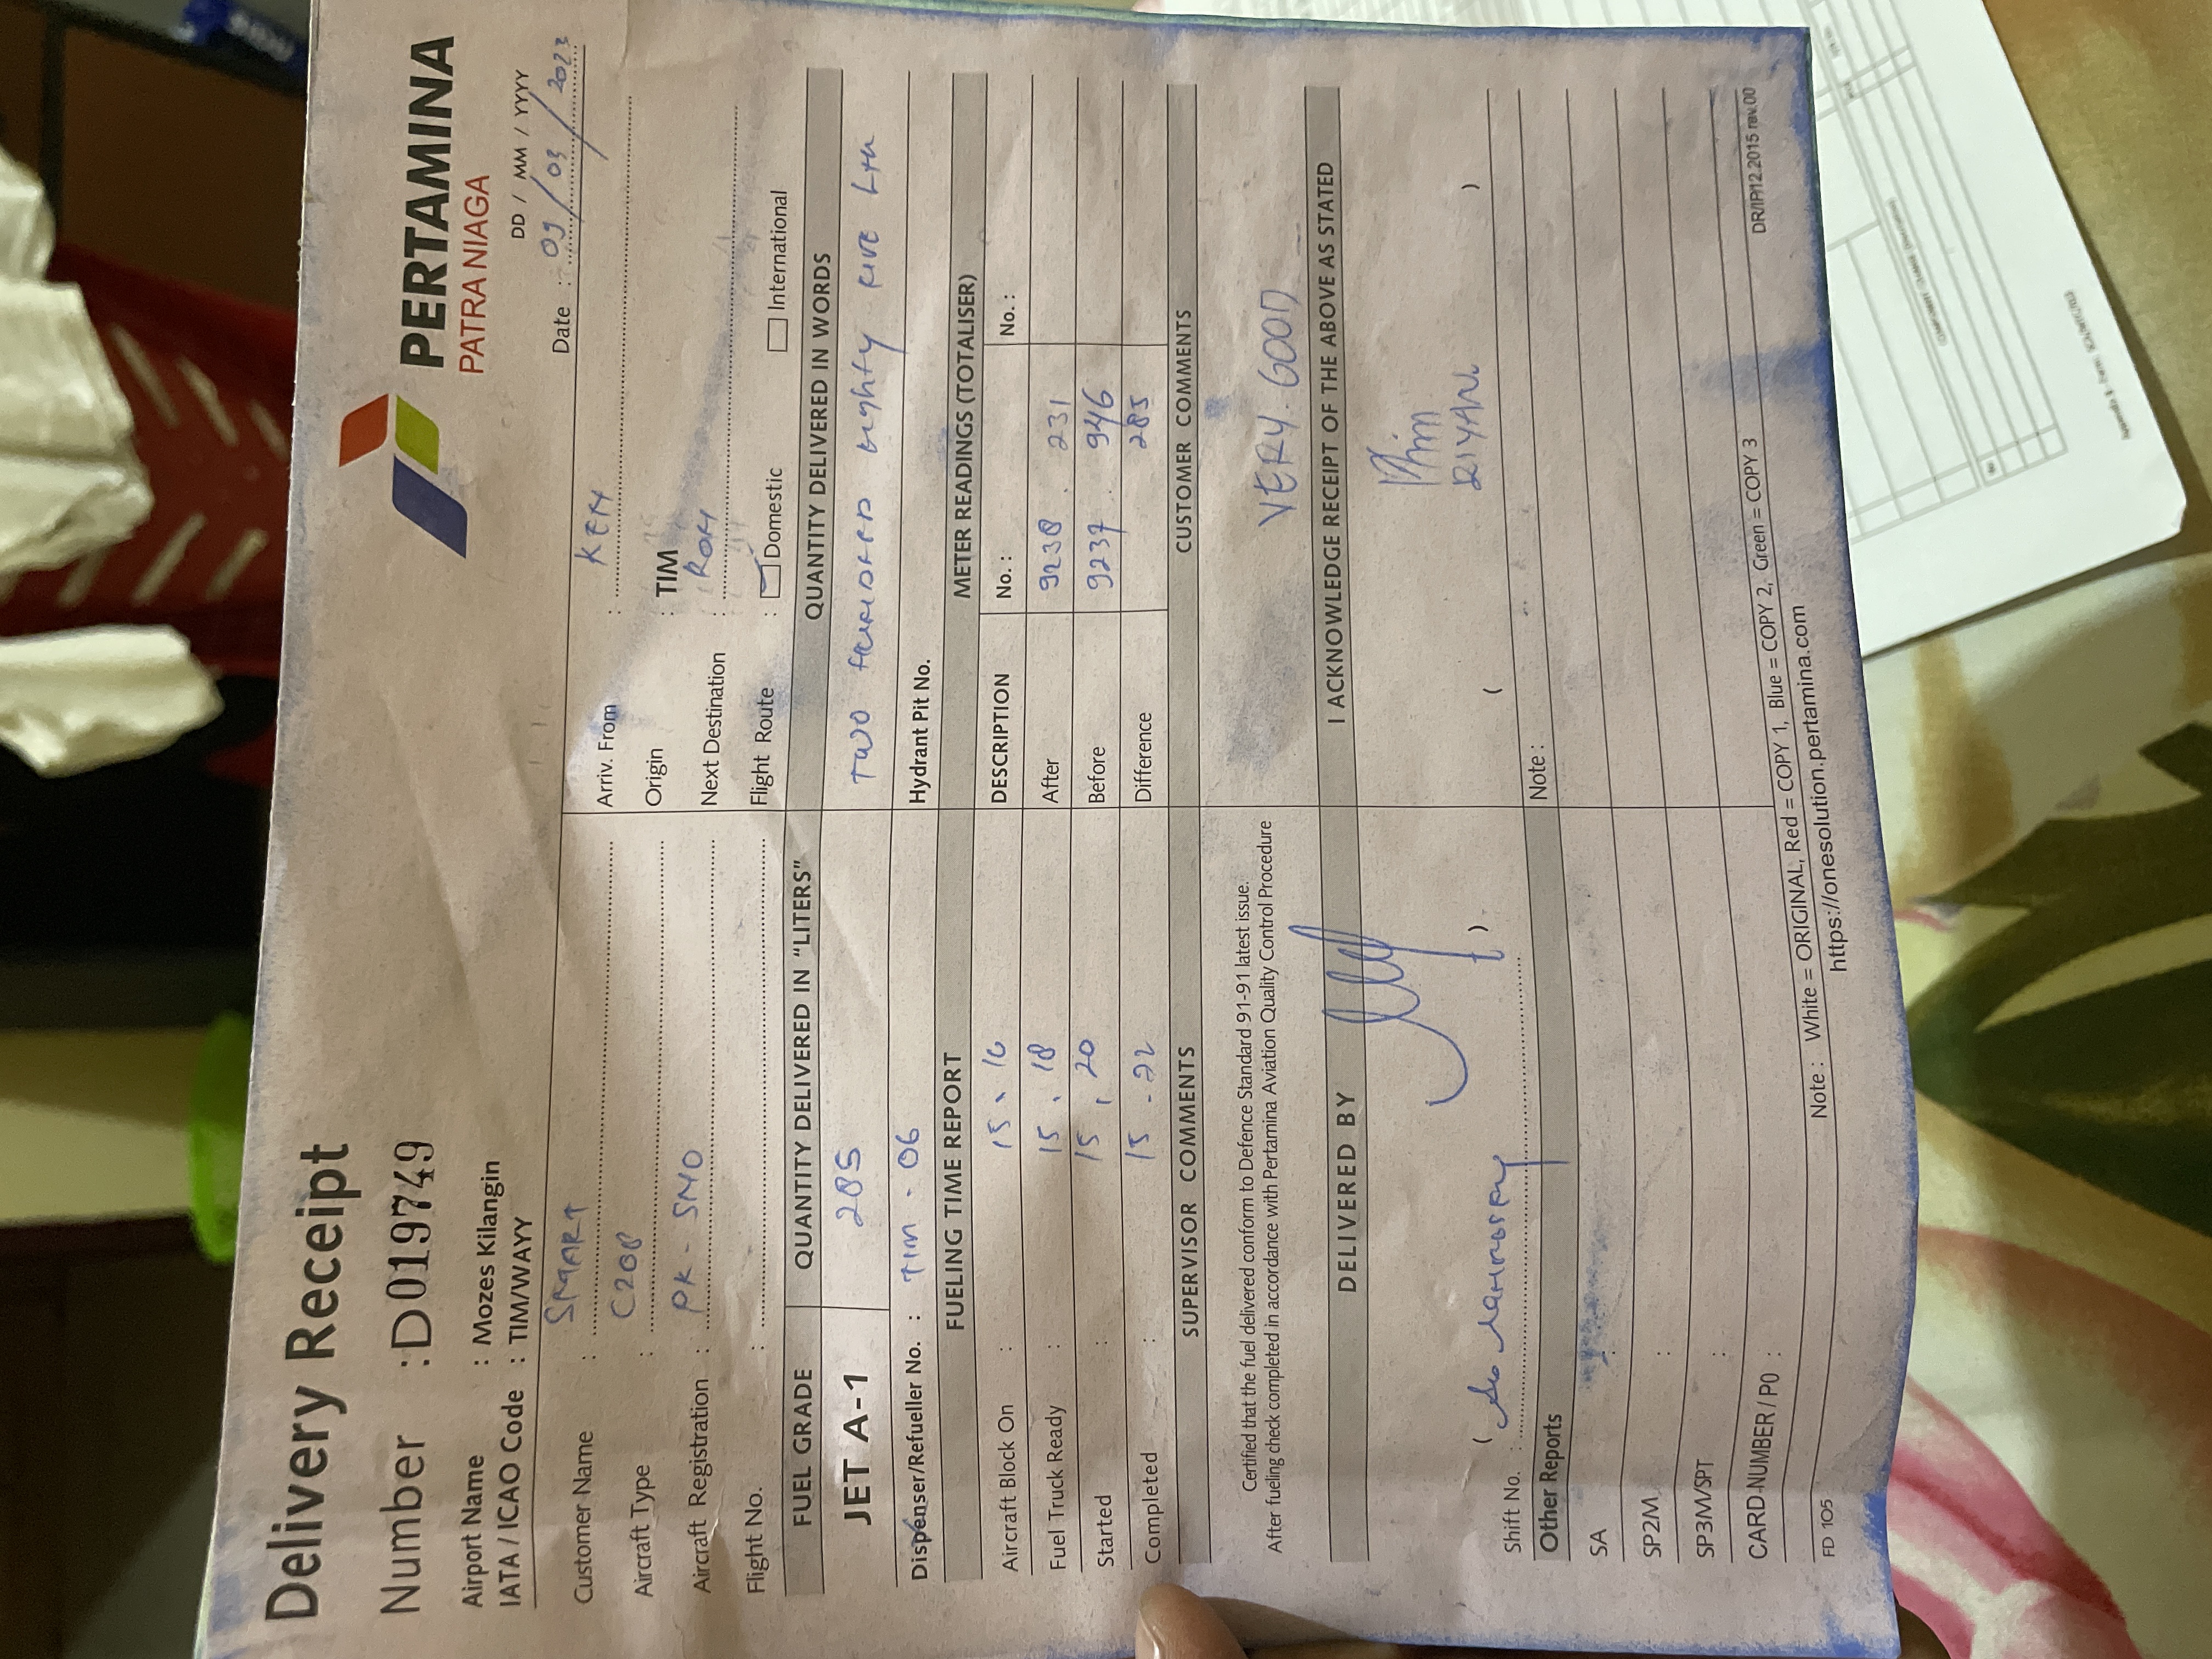 Delivery Receipt
Number : D019749
PERTAMINA
PATRA NIAGA
Airport Name : Mozes Kilangin
IATA / ICAO Code : TIM/WAYY
DD / MM / YYYY
Date : 09/03/2023
Customer Name : SMART
Arriv. From : KEM
Aircraft Type : C208
Origin : TIM
Aircraft Registration : PK - SNO
Next Destination :
Flight No. :
Flight Route : Domestic International
FUEL GRADE QUANTITY DELIVERED IN "LITERS" QUANTITY DELIVERED IN WORDS
JET A-1 285 TWO HUNDRED eighty FIVE Ltr
Dispenser/Refueller No. : TIM - 06 Hydrant Pit No.
FUELING TIME REPORT METER READINGS (TOTALISER)
Aircraft Block On : 15.16 DESCRIPTION No. : No. :
Fuel Truck Ready : 15.18 After 9238.231
Started : 15.20 Before 9237.946
Completed : 15-22 Difference 285
SUPERVISOR COMMENTS CUSTOMER COMMENTS
Certified that the fuel delivered conform to Defence Standard 91-91 latest issue.
After fueling check completed in accordance with Pertamina Aviation Quality Control Procedure
VERY GOOD
DELIVERED BY I ACKNOWLEDGE RECEIPT OF THE ABOVE AS STATED
RIYAN
( ) ( )
Shift No. :
Other Reports Note :
SA :
SP2M :
SP3M/SPT :
CARD-NUMBER / PO :
DR/IP/12.2015 rev.00
FD 105
Note : White = ORIGINAL, Red = COPY 1, Blue = COPY 2, Green = COPY 3
https://onesolution.pertamina.com